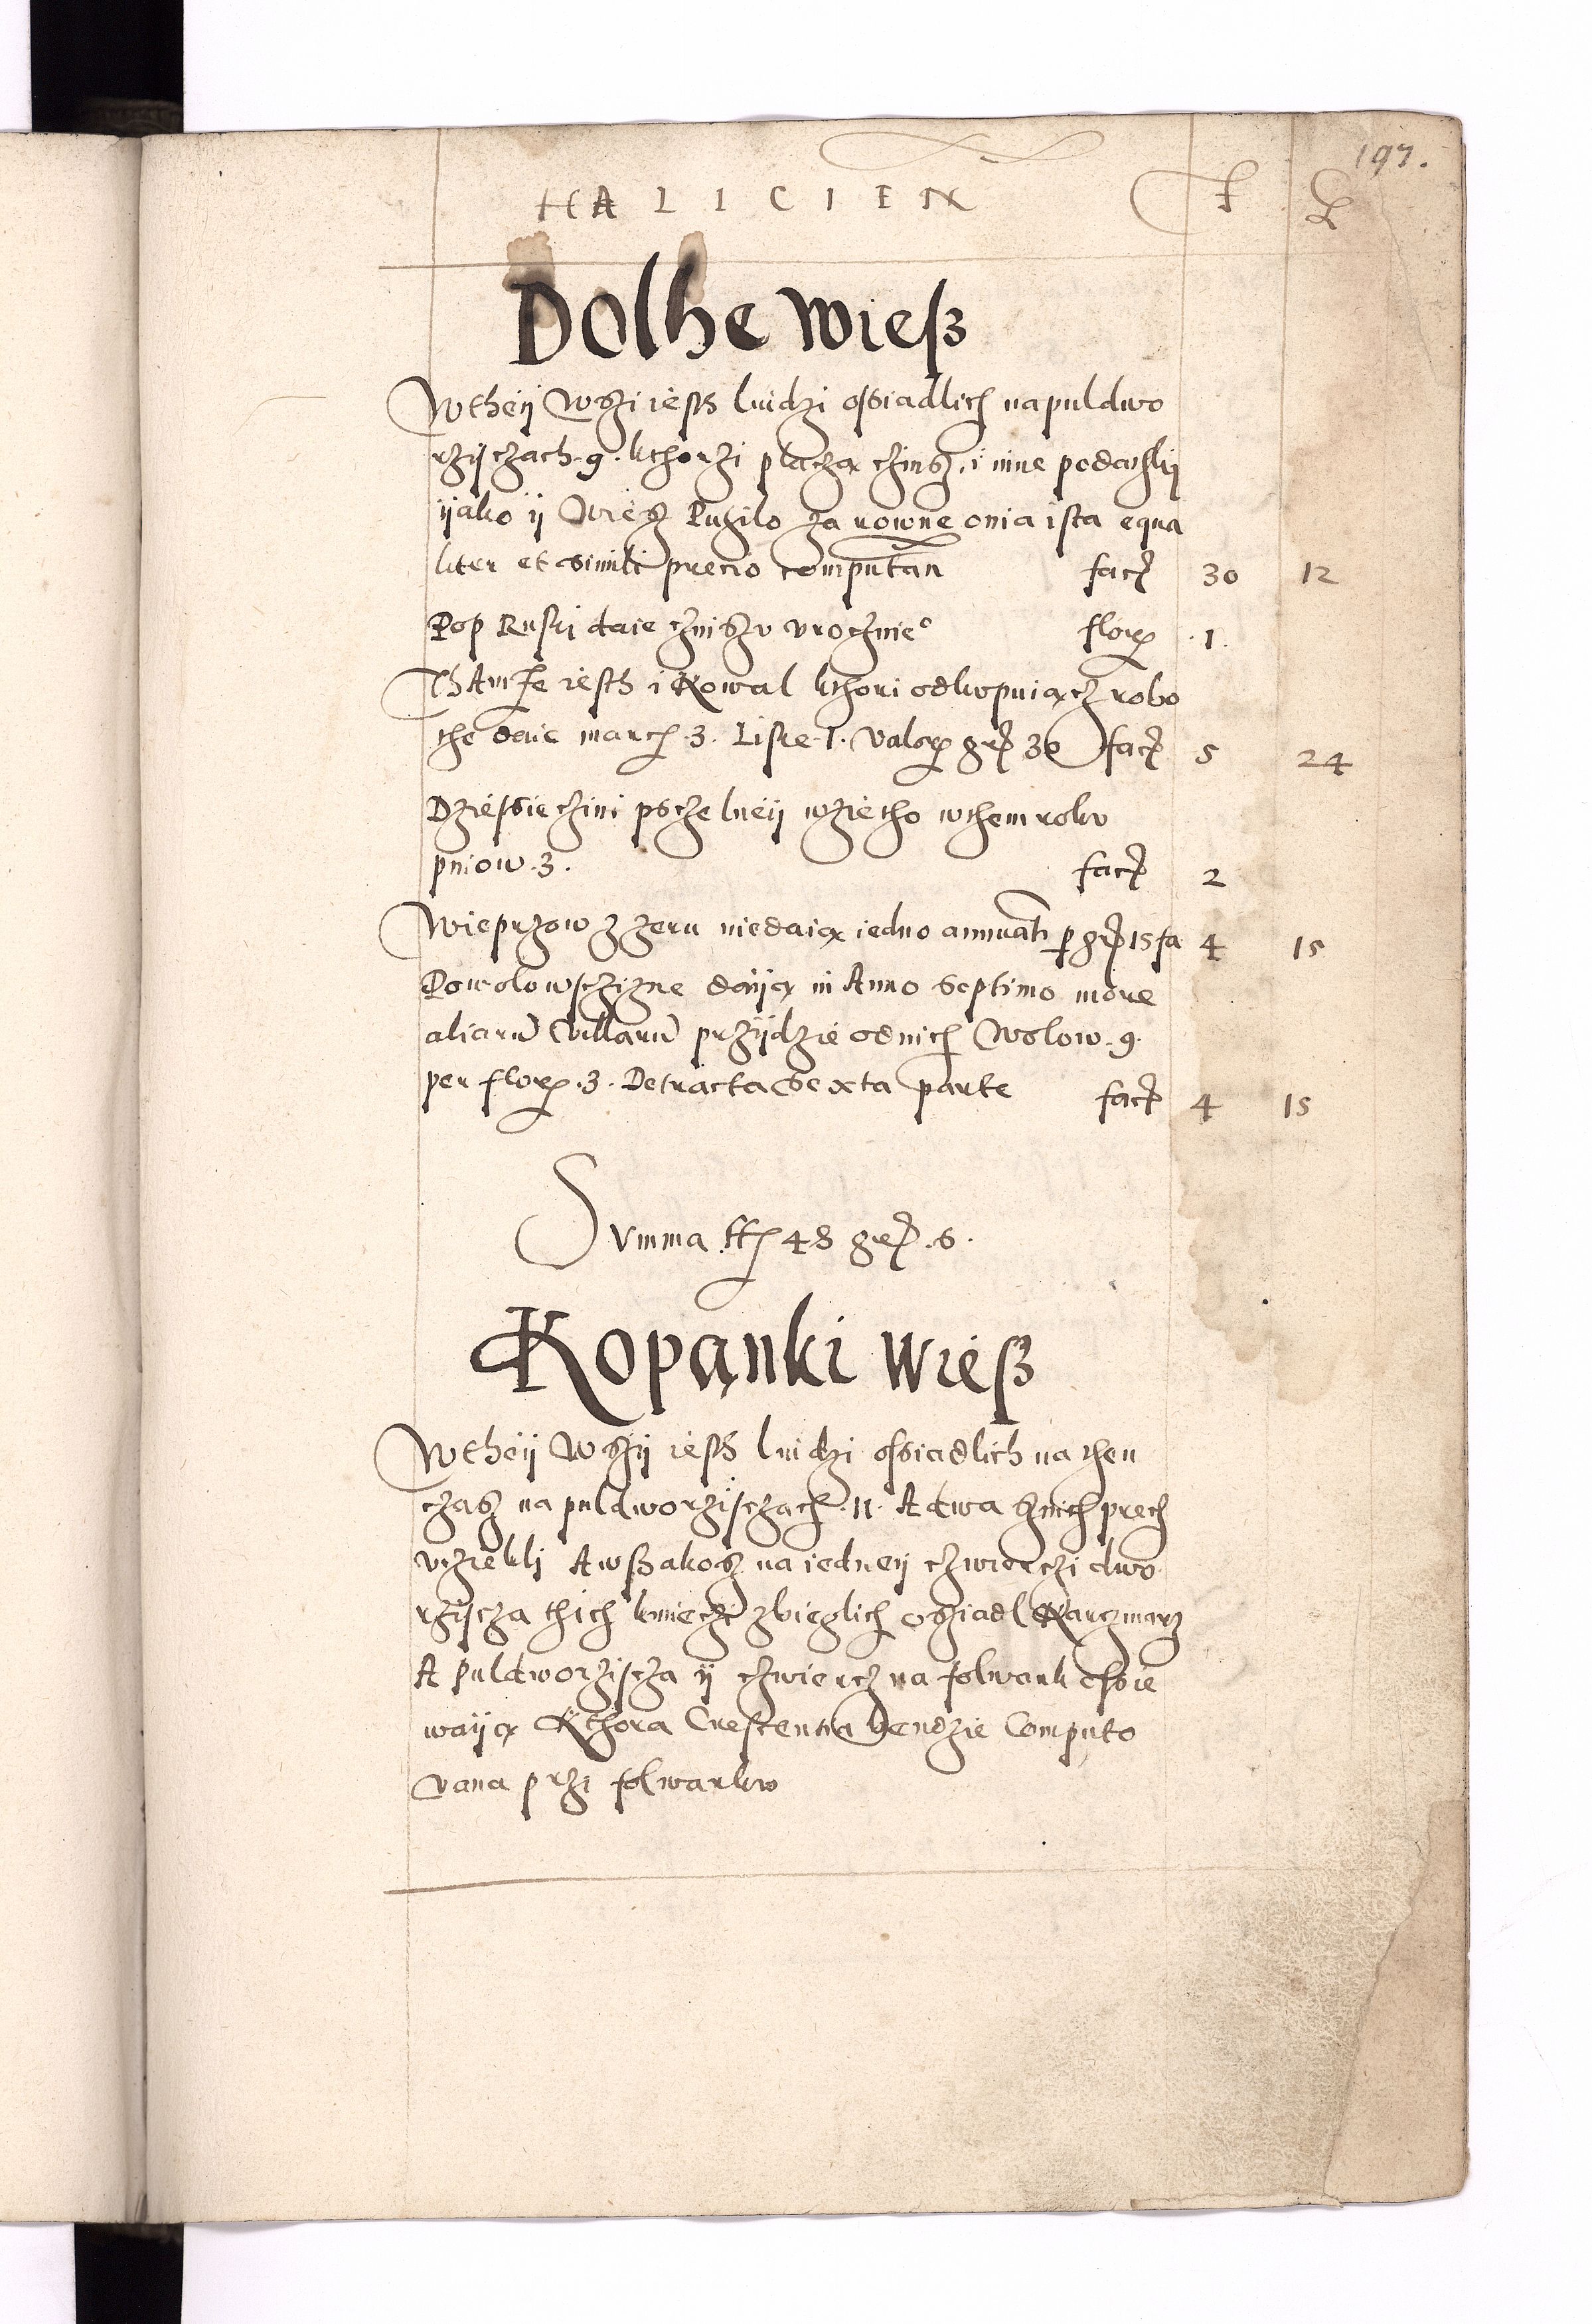 197.
HALICIEN f g
Dolhe wieß
Wtheÿ Wszi iesth ludzi ossiadlich na puldwo
rzÿsczach .9. kthorzi placzą czinsz, i inne podathkÿ
ÿako ÿ Wiesz Puzilo za rowne onia ista equa
liter et simili precio computan fact 30 12
Pop Ruski daie czinszv vrocznie flor .1.
Thamże iesth i Kowal kthori odkvpuiącz robo
the daie march .3. Lisie .1. valor gr 30 fact 5 24
Dziessieczini psczelneÿ wzietho wthem rokv
pniow .3. fact 2
Wieprzow z zeru niedaią iedno annuati p gr 15 fa 4 15
Powolowsczizne daiją in Anno Septimo more
aliaru Villaru przÿdzie od nich Wolow .9.
per flor .3. Detracta Sexta parte fact 4 15
Svmma ff 48 gr .6.
Kopąnki wieß
Wtheÿ Wszÿ iesth ludzi ossiadlich na then
czasz na puldworzisczach .11. A dwa sznich precz
vcziekli A wszakosz na iedneÿ czwierczi dwo
rzÿscza thich kmieczi zbieglich osziadl Karczmarz
A puldworziscza ÿ czwiercz na folwark ossie
waiją Kthora Crestentia bendzie Computo
vana przi folwarkv